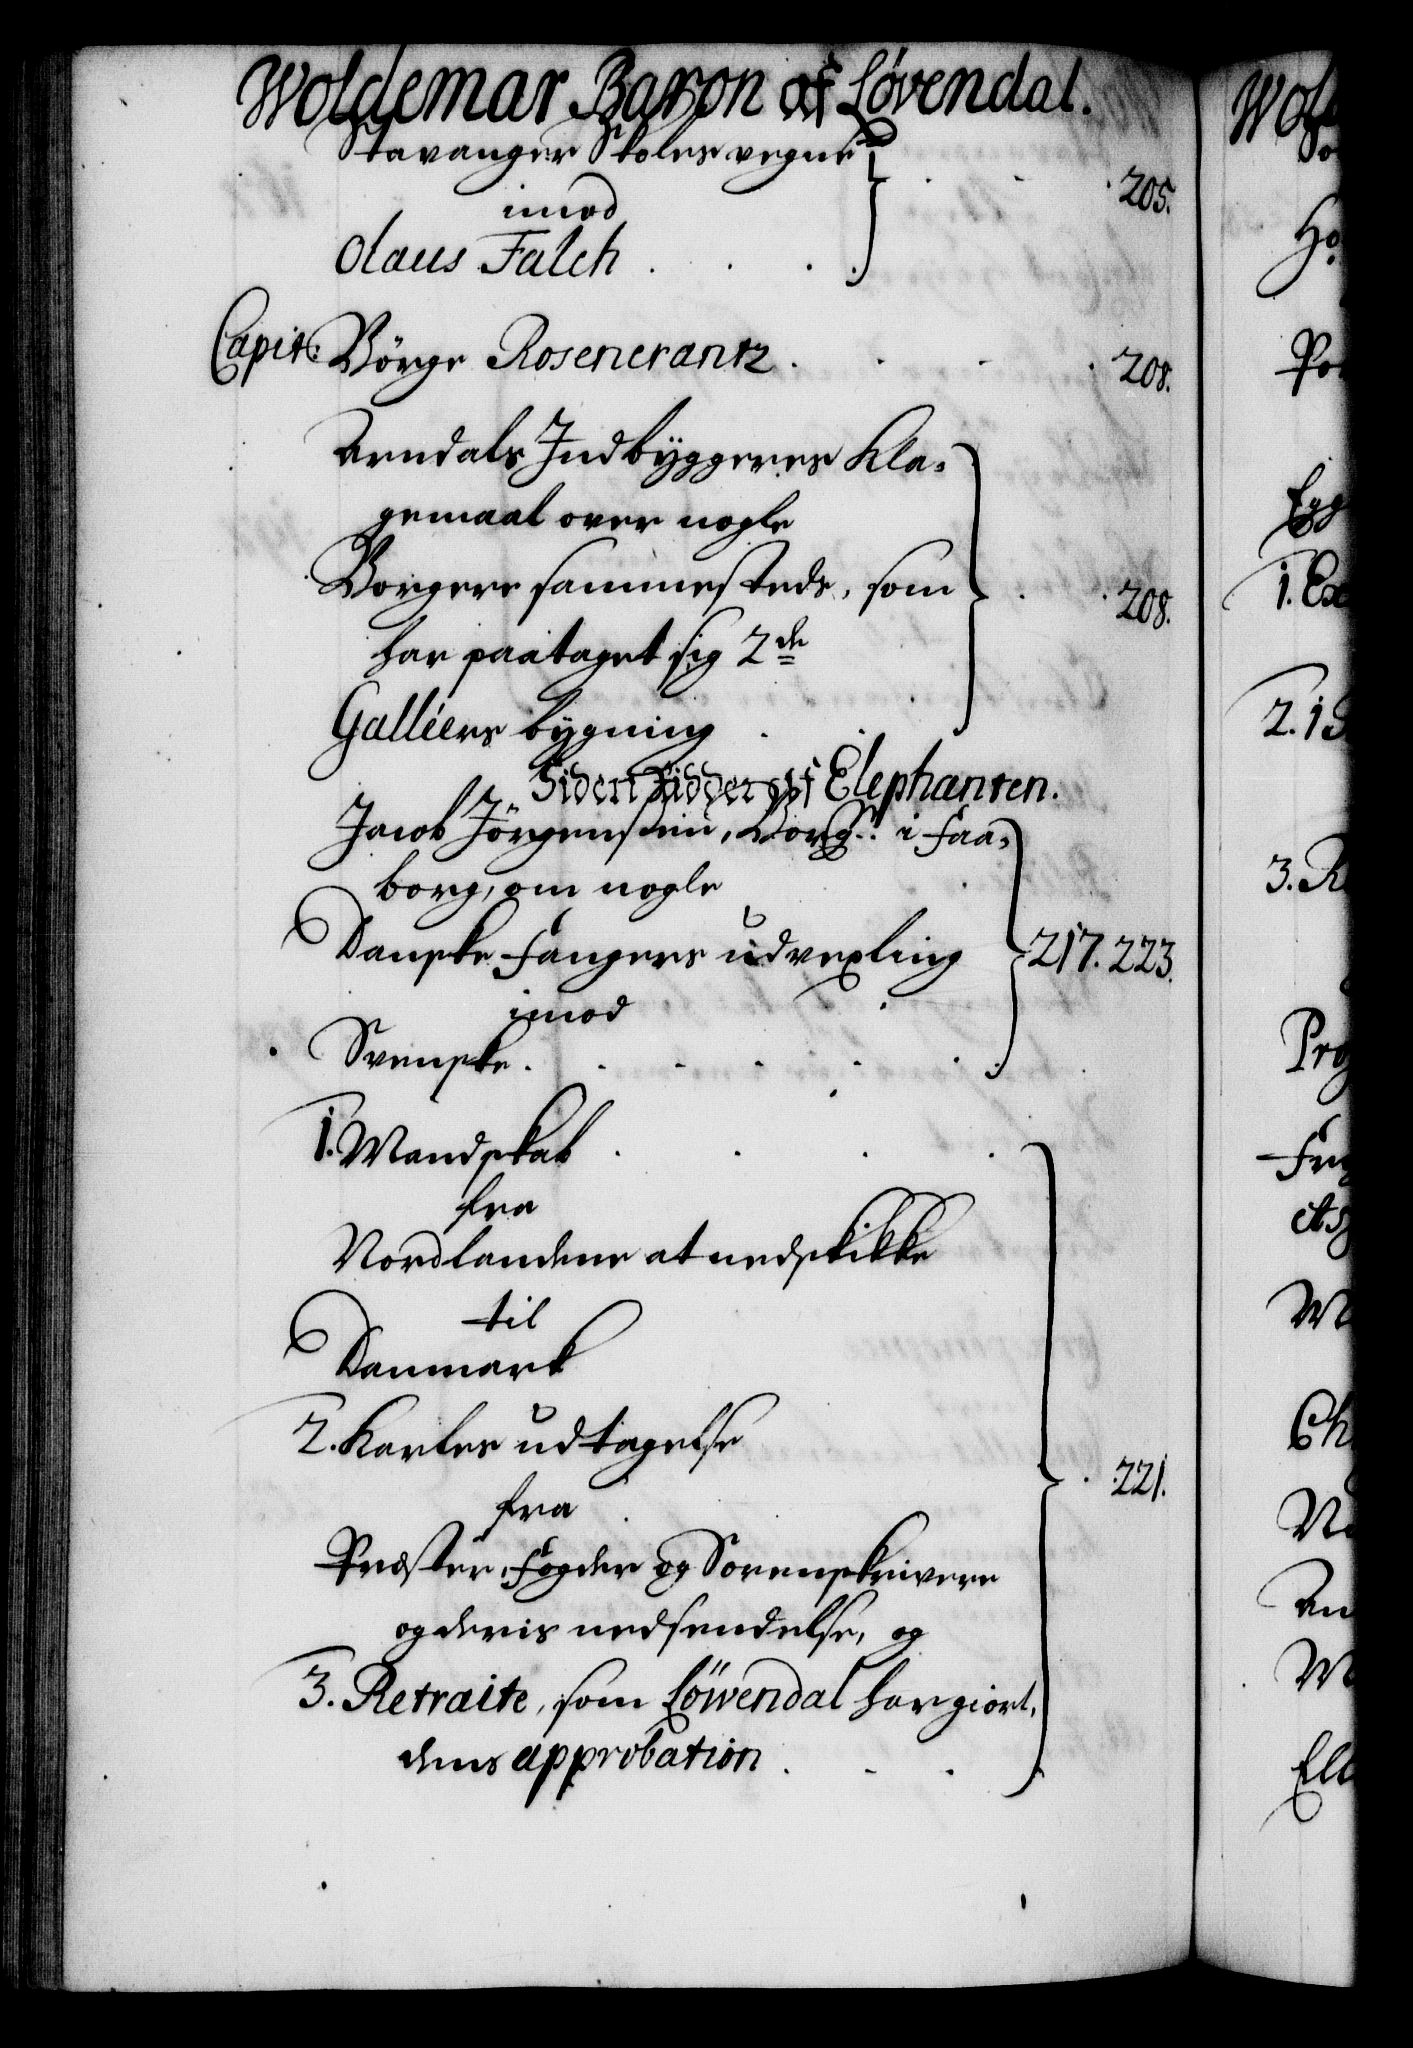 Woldemar Baron af Løvendal.
Stavanger Skoles vegne
imod
Olaus Falch . . . . 205.
Capit: Børge Rosencrantz . . . . 208.
Arendals Indbyggeres Kla-
gemaal over nogle
Borgere sammesteds, som
har paataget sig 2de
Galliers bygning . . . 208.
Siden Ridder af Elephanten.
Jacob Jørgensen, Borg: i Faa-
borg, om nogle
Danske Fangers udvexling
imod
Svenske . . . . . 217. 223.
1. Mandskab . . . .
fra
Nordlandene at nedskikke
til
Danmark
2. Karles udtagelse
fra
Præster, Fogder og Sorenskrivere
og deris nedsendelse, og
3. Retraite, som Löwendal har giort,
dens approbation . . . 221.